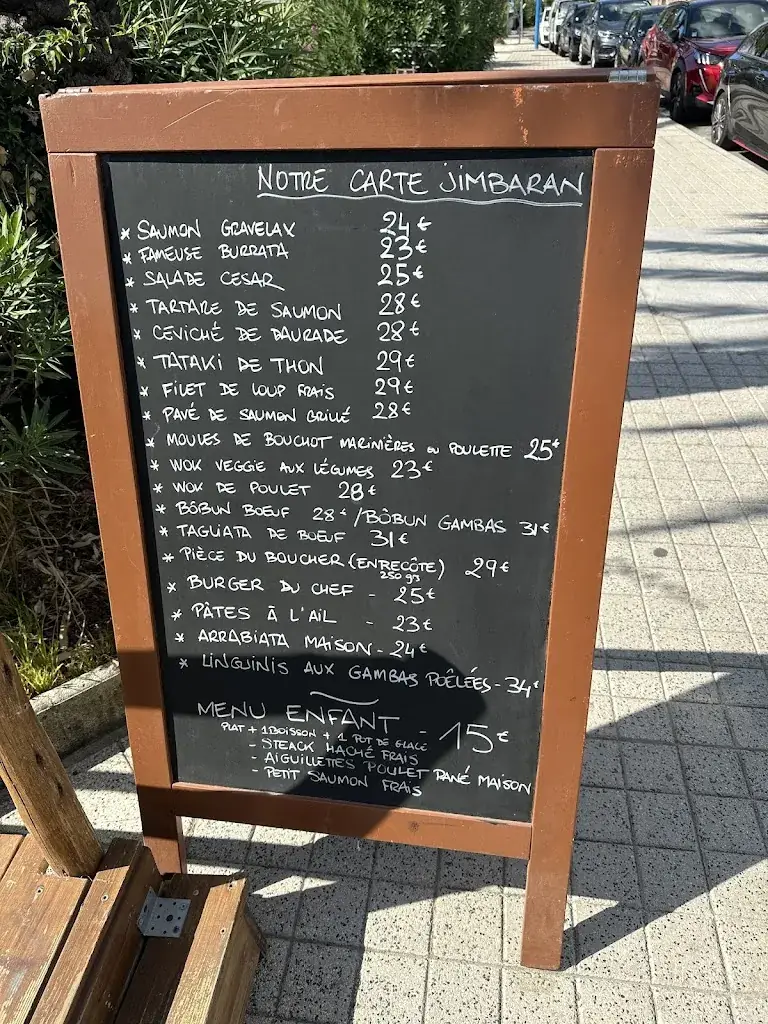 NOTRE CARTE JIMBARAN
* SAUMON GRAVELAX 24€
* FAMEUSE BURRATA 23€
* SALADE CESAR 25€
* TARTARE DE SAUMON 28€
* CEVICHÉ DE DAURADE 28€
* TATAKI DE THON 29€
* FILET DE LOUP FRAIS 29€
* PAVÉ DE SAUMON GRILLÉ 28€
* MOULES DE BOUCHOT MARINIÈRES OU POULETTE 25€
* WOK VEGGIE AUX LÉGUMES 23€
* WOK DE POULET 28€
* BÔBUN BOEUF 28€ / BÔBUN GAMBAS 31€
* TAGLIATA DE BOEUF 31€
* PIÈCE DU BOUCHER (ENRECÔTE) 29€
250 grs
* BURGER DU CHEF - 25€
* PÂTES À L'AIL - 23€
* ARRABIATA MAISON - 24€
* LINGUINIS AUX GAMBAS POÊLÉES - 34€
MENU ENFANT - 15€
PLAT + 1 BOISSON + 1 POT DE GLACE
- STEACK HACHÉ FRAIS
- AIGUILLETTES POULET PANÉ MAISON
- PETIT SAUMON FRAIS